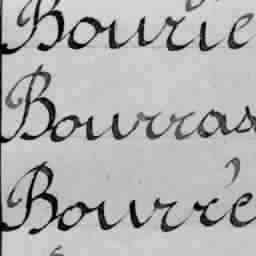 Bourie
Bourras
Bourré